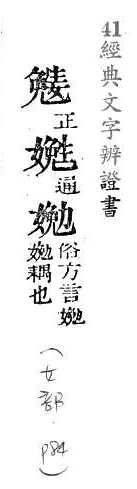 41經典文字辨證書
正
嬎通
嬔俗方言嬔
嬔耦也
(女部 P84)